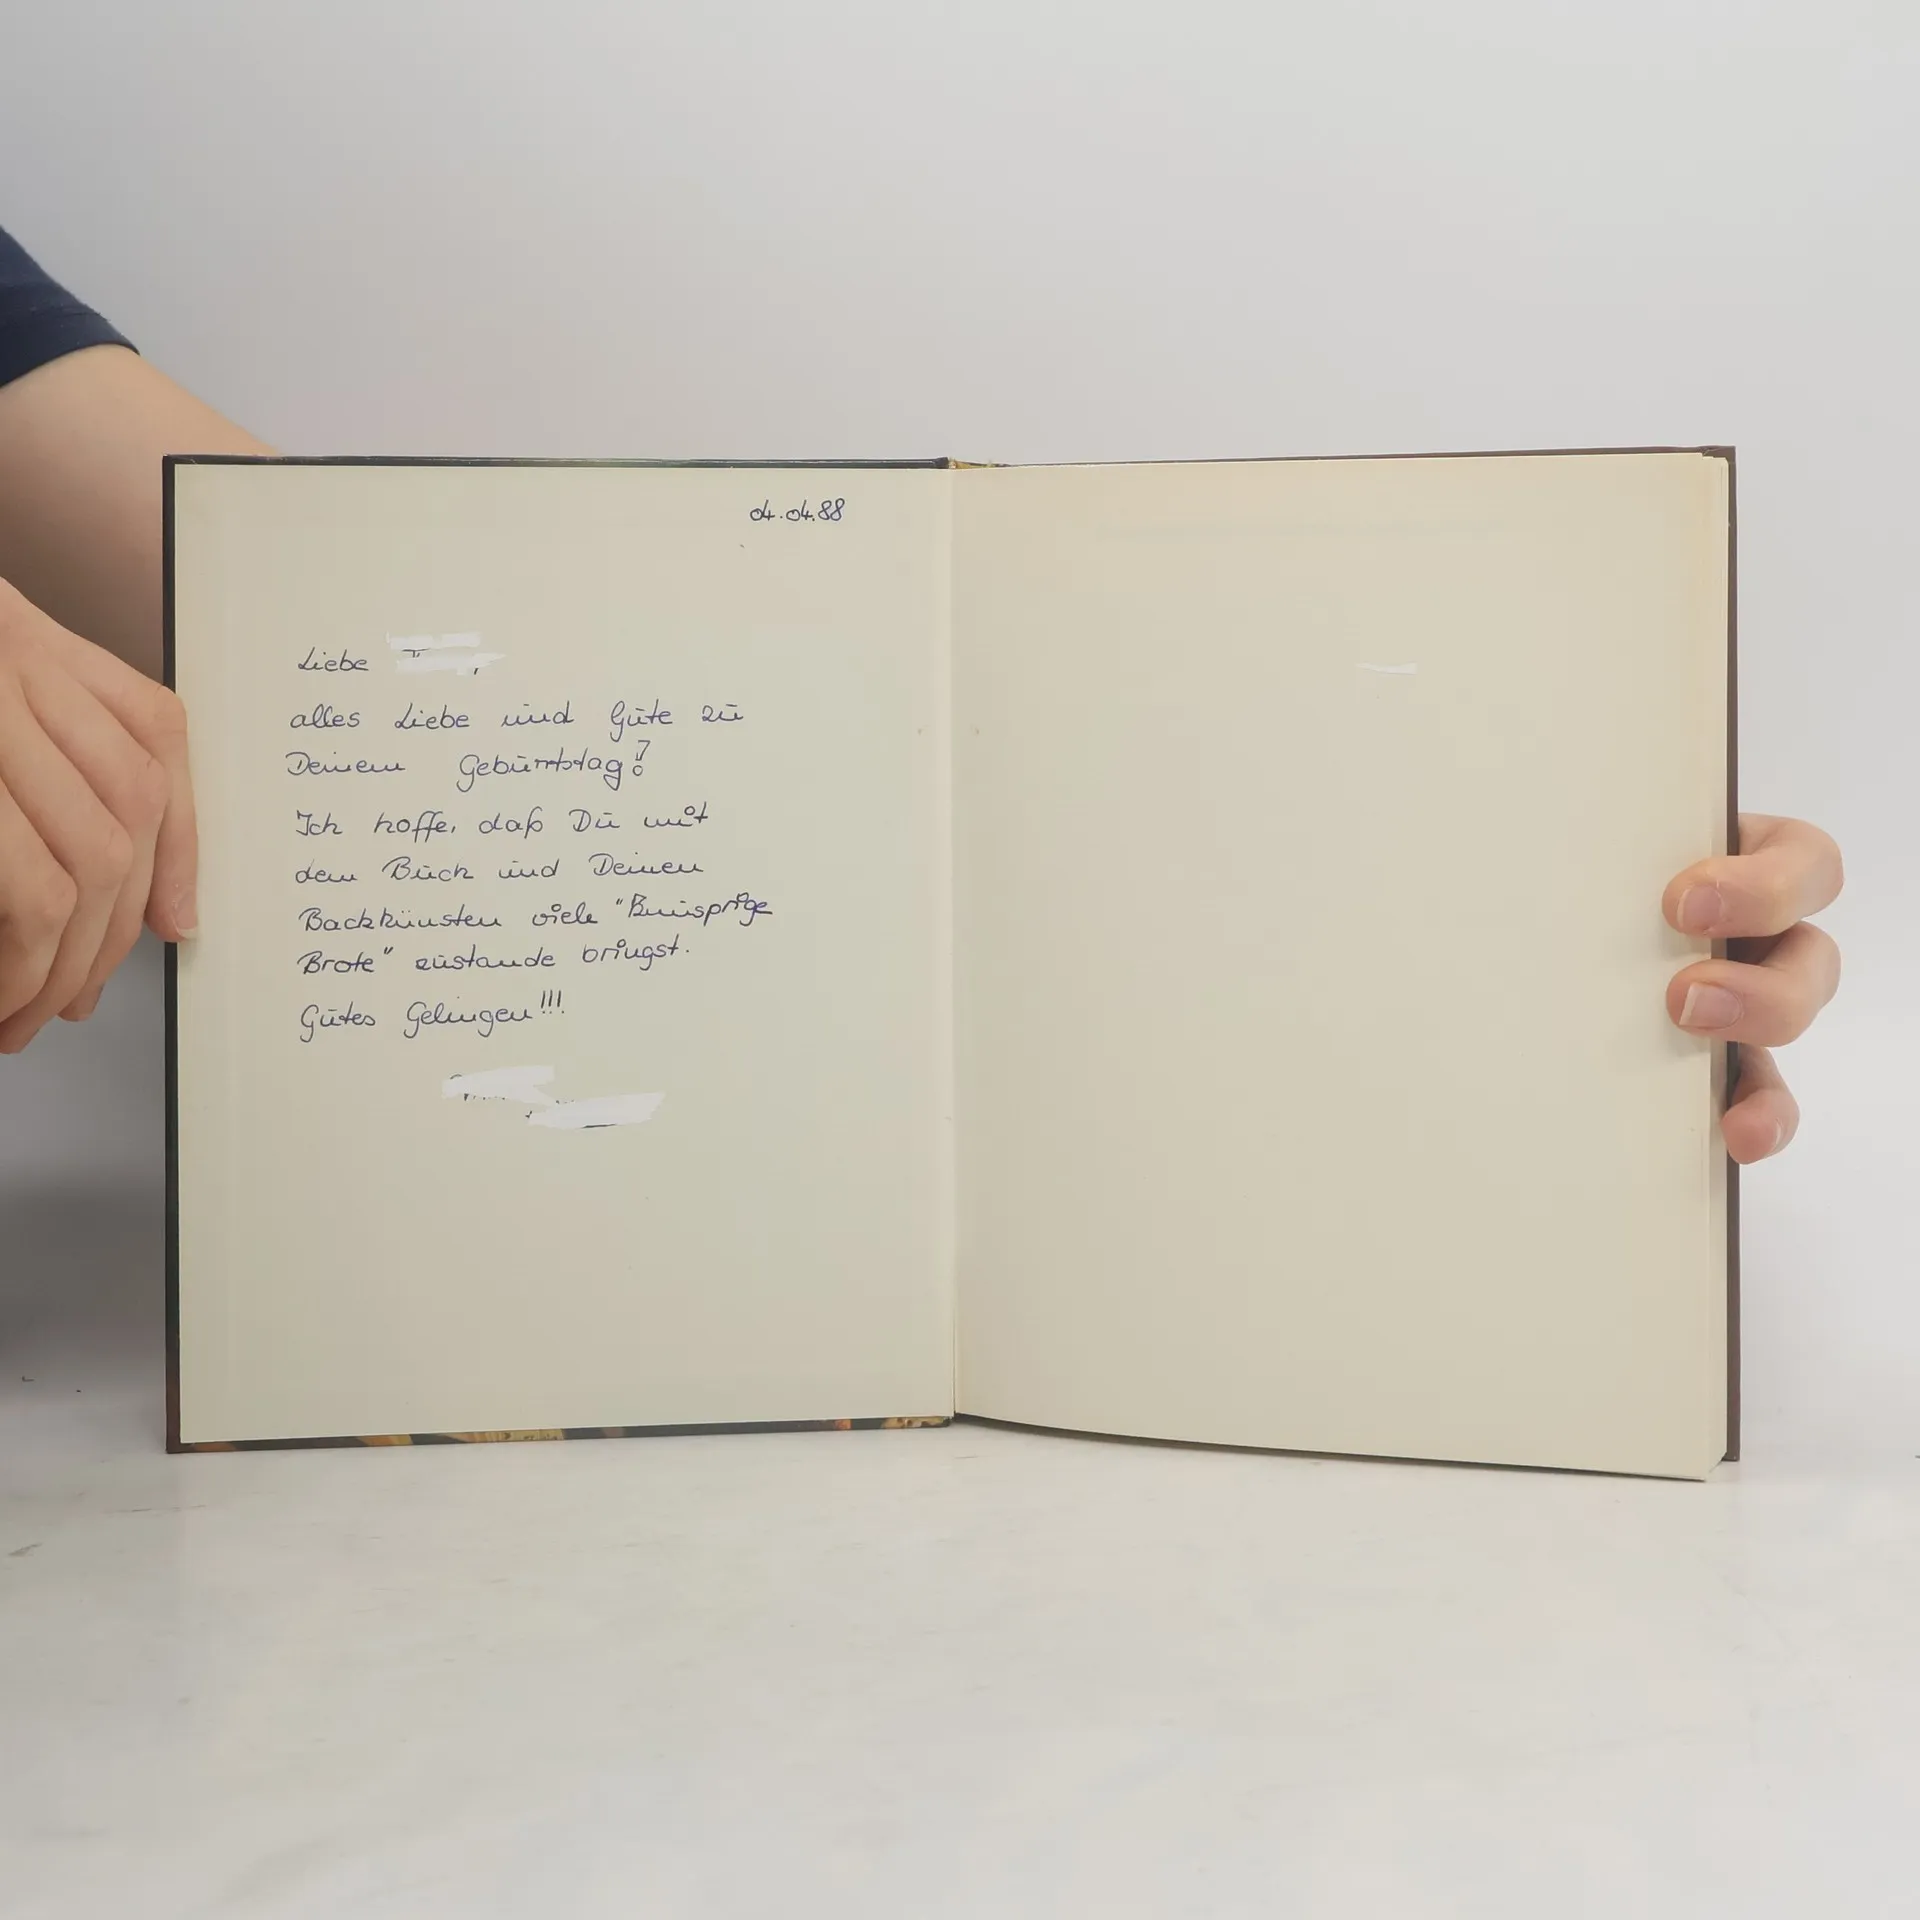 04.04.88
Liebe
alles Liebe und Gute zu
Deinem Geburtstag!
Ich hoffe, daß Du mit
dem Buch und Deinen
Backkünsten viele "Knusprige
Brote" zustande bringst.
Gutes Gelingen!!!